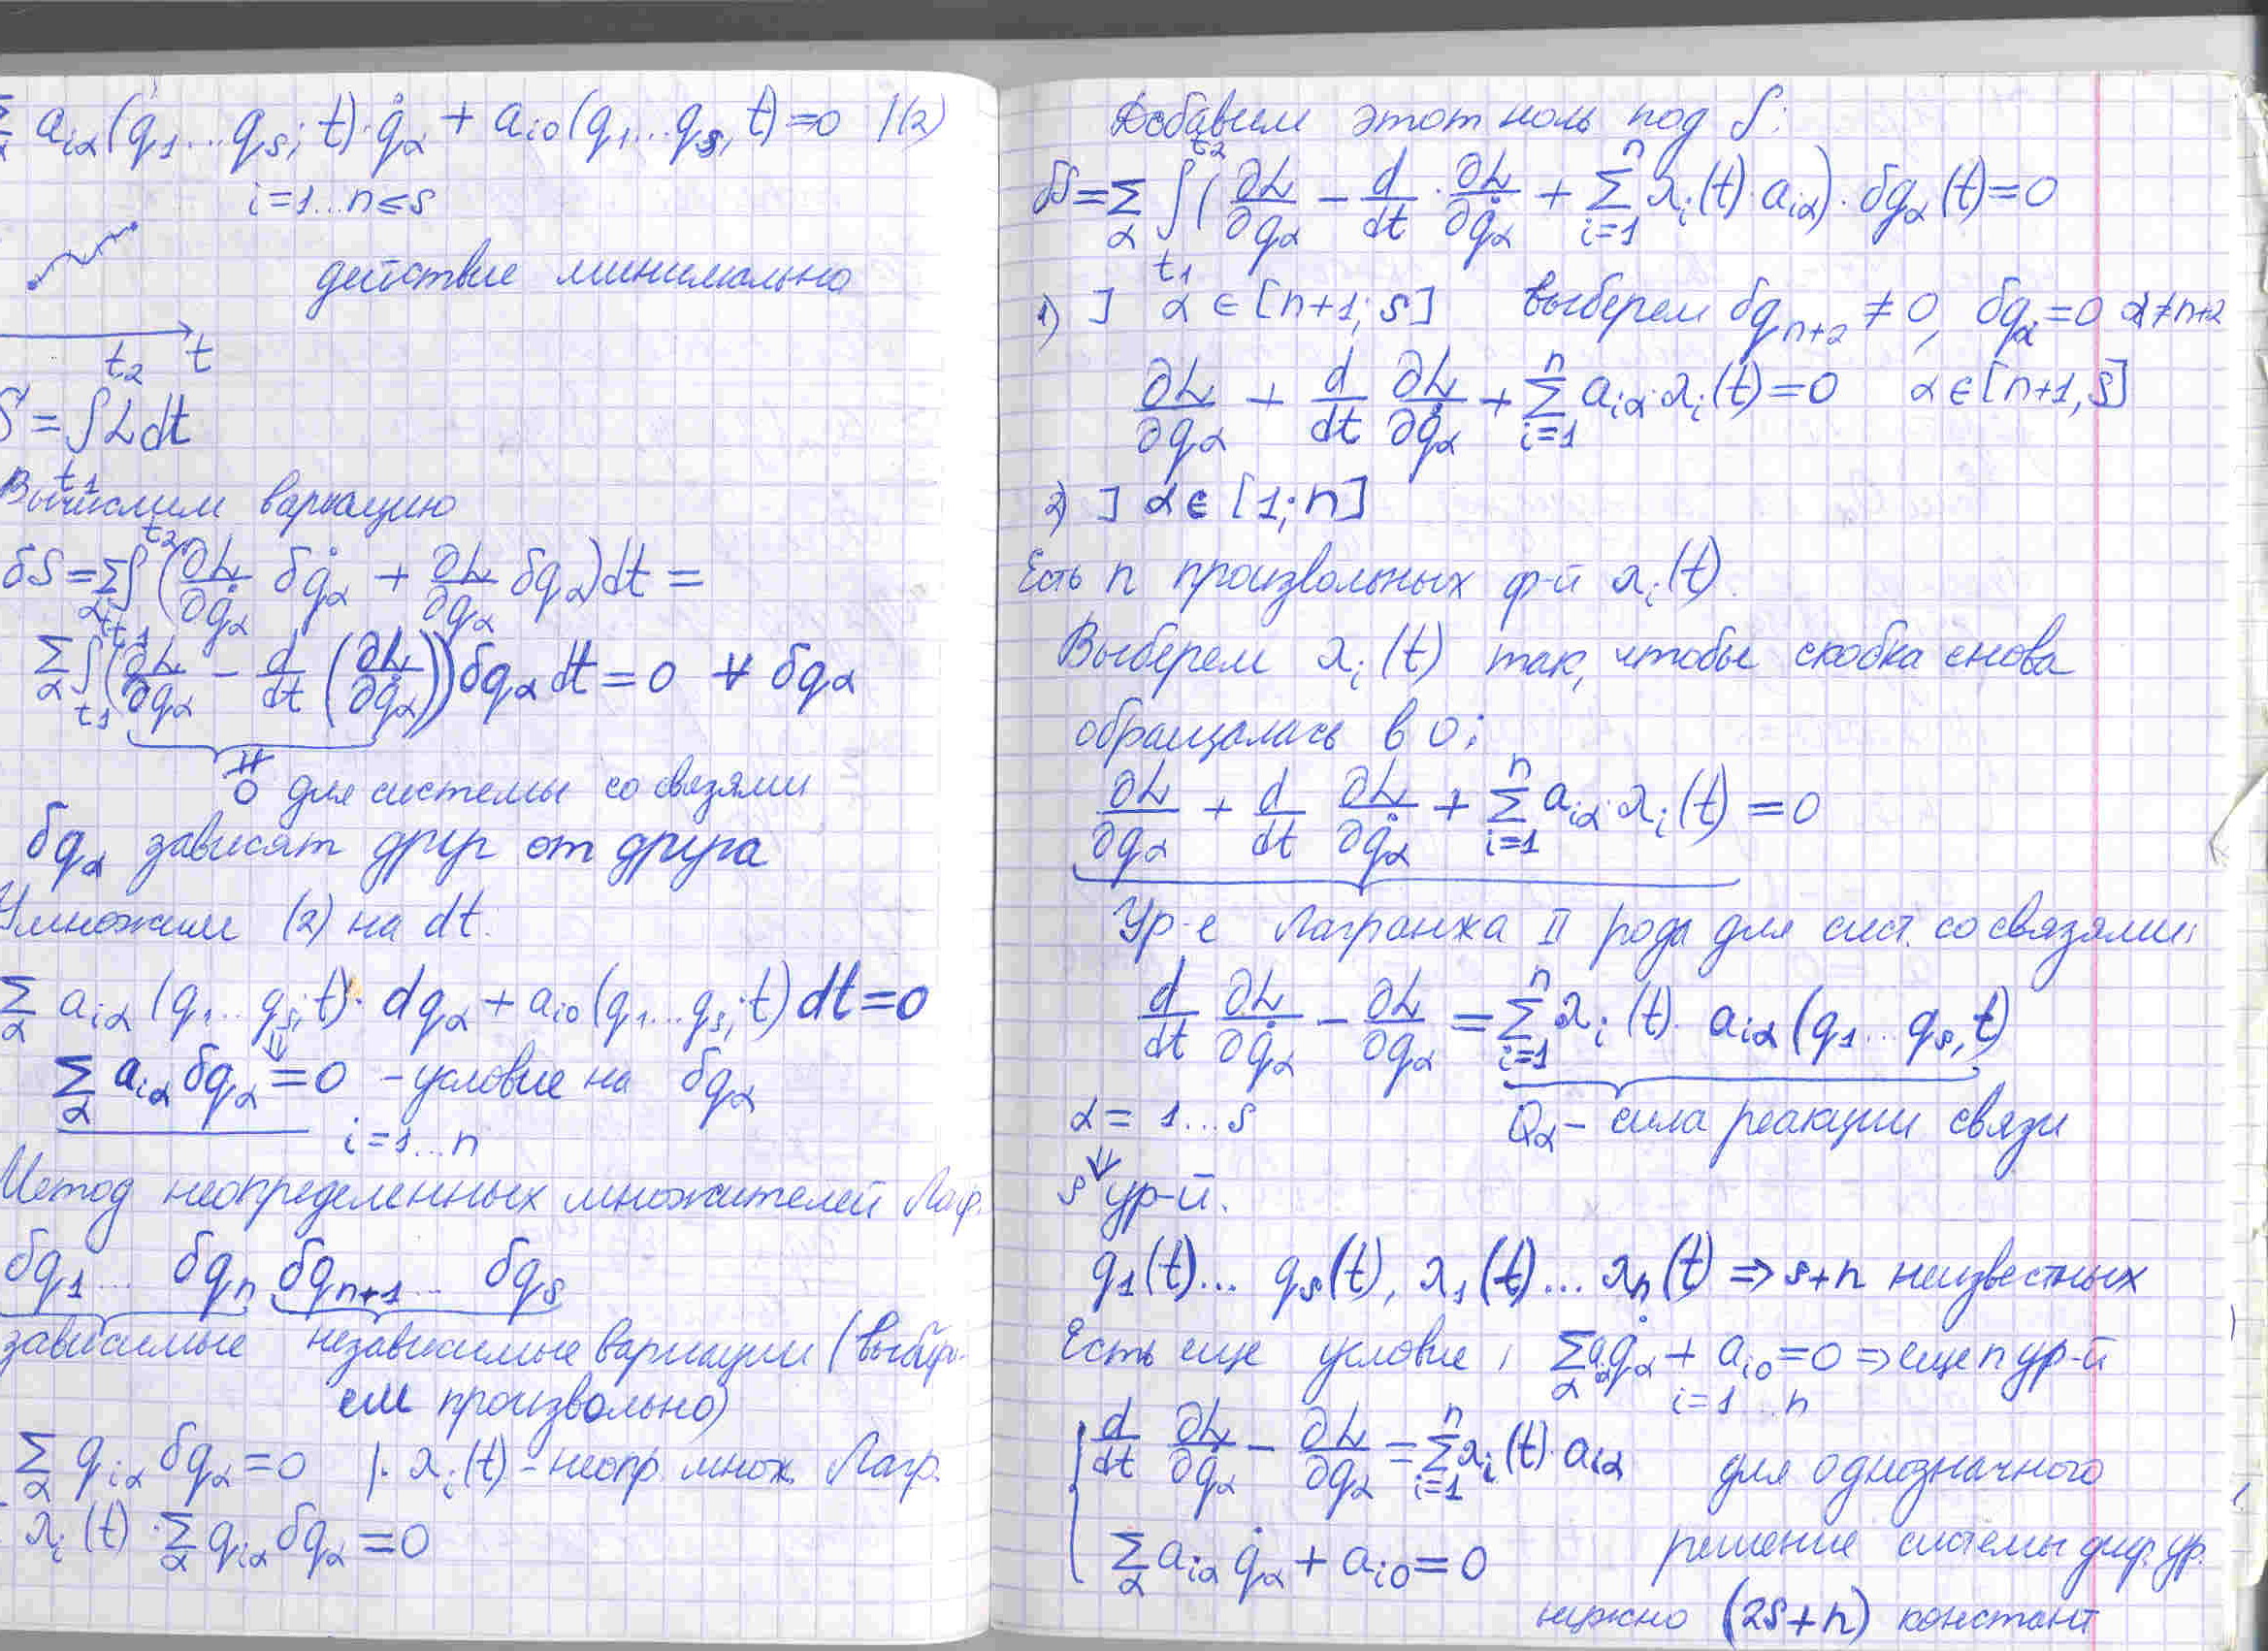 Σ a_{iα}(q_1...q_s; t)·q̇_α + a_{i0}(q_1...q_s, t)=0 |(2)
i=1...n≤s
действие минимально
t_2 t
S = ∫_{t_1} L dt
Вычислим вариацию
δS = Σ_α ∫_{t_1}^{t_2} (∂L/∂q̇_α δq̇_α + ∂L/∂q_α δq_α)dt =
Σ_α ∫_{t_1} (∂L/∂q_α − d/dt (∂L/∂q̇_α)) δq_α dt = 0 ∀ δq_α
≠ 0 для системы со связями
δq_α зависят друг от друга
Умножим (2) на dt.
Σ_α a_{iα}(q_1...q_s; t)· dq_α + a_{i0}(q_1...q_s; t) dt = 0
⇓
Σ_α a_{iα} δq_α = 0 - условие на δq_α
i=1...n
Метод неопределенных множителей Лагр.
δq_1... δq_n δq_{n+1}... δq_s
зависимые независимые вариации (выбира-
ем произвольно)
Σ_α q_{iα} δq_α = 0 |· λ_i(t) - неопр. множ. Лагр.
λ_i(t)·Σ_α q_{iα} δq_α = 0
Добавим этот ноль под ∫:
δS = Σ_α ∫_{t_1}^{t_2} (∂L/∂q_α − d/dt · ∂L/∂q̇_α + Σ_{i=1}^{n} λ_i(t)·a_{iα})· δq_α(t) = 0
1) ] α ∈ [n+1; s] выберем δq_{n+2} ≠ 0, δq_α = 0 α ≠ n+2
∂L/∂q_α + d/dt ∂L/∂q̇_α + Σ_{i=1}^{n} a_{iα}·λ_i(t) = 0 α ∈ [n+1, s]
2) ] α ∈ [1; n]
Есть n произвольных ф-й λ_i(t).
Выберем λ_i(t) так, чтобы скобка снова
обращалась в 0:
∂L/∂q_α + d/dt ∂L/∂q̇_α + Σ_{i=1}^{n} a_{iα}·λ_i(t) = 0
Ур-е Лагранжа II рода для сист. со связями:
d/dt ∂L/∂q̇_α − ∂L/∂q_α = Σ_{i=1}^{n} λ_i(t)· a_{iα}(q_1...q_s, t)
α = 1...s Q_α - сила реакции связи
⇓
s ур-й.
q_1(t)... q_s(t), λ_1(t)... λ_n(t) ⇒ s+n неизвестных
Есть еще условие: Σ_α a_{iα} q̇_α + a_{i0} = 0 ⇒ еще n ур-й
i=1...n
{ d/dt ∂L/∂q̇_α − ∂L/∂q_α = Σ_{i=1}^{n} λ_i(t)·a_{iα} для однозначного
Σ_α a_{iα} q̇_α + a_{i0} = 0 решение системы диф. ур.
нужно (2s+n) констант